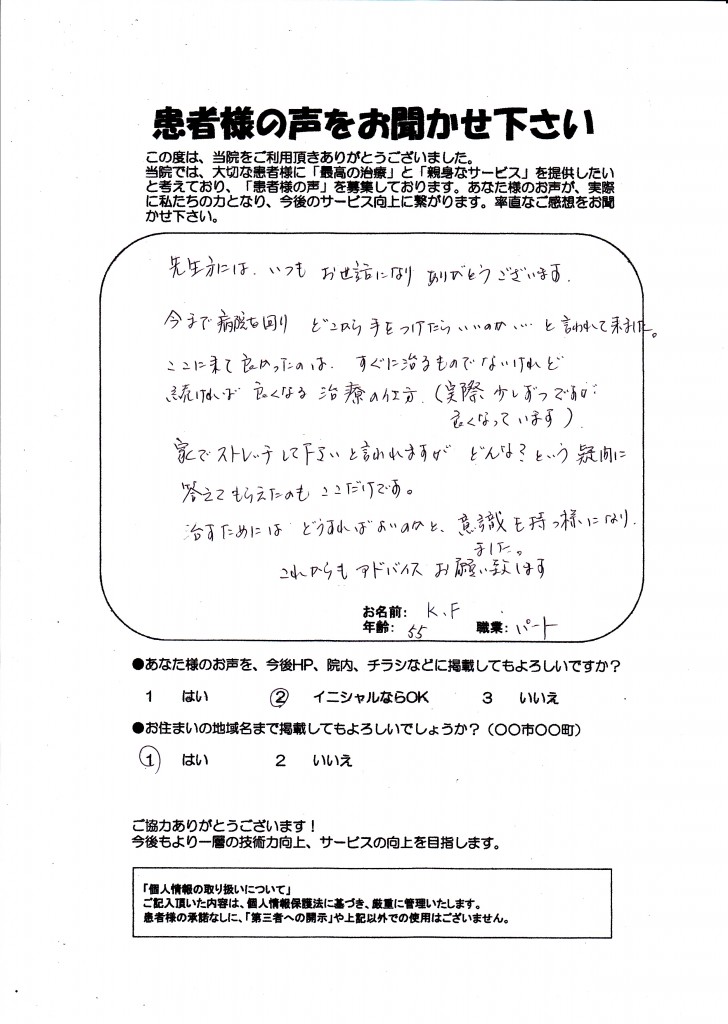 患者様の声をお聞かせ下さい
この度は、当院をご利用頂きありがとうございました。
当院では、大切な患者様に「最高の治療」と「親身なサービス」を提供したい
と考えており、「患者様の声」を募集しております。あなた様のお声が、実際
に私たちの力となり、今後のサービス向上に繋がります。率直なご感想をお聞
かせ下さい。
先生方には、いつも お世話になり ありがとうございます。
今まで病院を回り どこから手をつけたらいいのか… と言われて来ました。
ここに来て良かったのは、すぐに治るものでないけれど
続ければ 良くなる 治療の仕方.(実際 少しずつですが
良くなっています)
家でストレッチして下さいと言われますが どんな?という疑問に
答えてもらえたのも ここだけです。
治すためには どうすればよいのかと、意識も持つ様になり
ました。
これからも アドバイス お願い致します
お名前: K.F
年齢: 55 職業: パート
●あなた様のお声を、今後HP、院内、チラシなどに掲載してもよろしいですか?
1 はい ② イニシャルならOK 3 いいえ
●お住まいの地域名まで掲載してもよろしいでしょうか?(〇〇市〇〇町)
① はい 2 いいえ
ご協力ありがとうございます!
今後もより一層の技術力向上、サービスの向上を目指します。
「個人情報の取り扱いについて」
ご記入頂いた内容は、個人情報保護法に基づき、厳重に管理いたします。
患者様の承諾なしに、「第三者への開示」や上記以外での使用はございません。